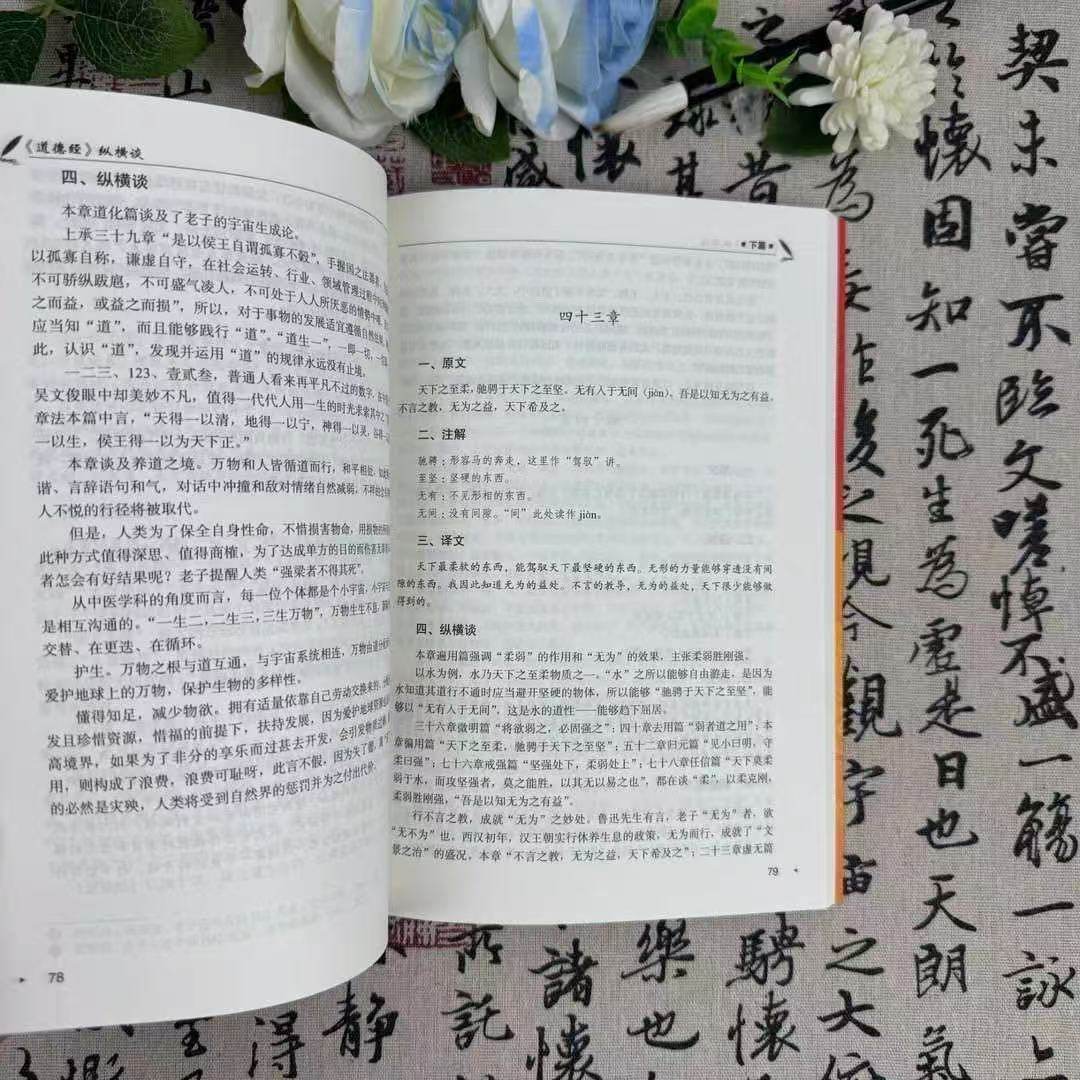 《道德经》纵横谈
四、纵横谈
本章道化篇谈及了老子的宇宙生成论。
上承三十九章“是以侯王自谓孤寡不毂”，手握国之法器者，
以孤寡自称，谦虚自守，在社会运转、行业、领域管理过程中
不可骄纵跋扈，不可盛气凌人，不可处于人人所厌恶的情势中
之而益，或益之而损”，所以，对于事物的发展适宜遵循自然
应当知“道”，而且能够践行“道”。“道生一”，一即一切，一
此，认识“道”，发现并运用“道”的规律永远没有止境。
一二三、123、壹贰叁，普通人看来再平凡不过的数字，
吴文俊眼中却美妙不凡，值得一代代人用一生的时光求索其中之
章法本篇中言，“天得一以清，地得一以宁，神得一以灵，谷得一
一以生，侯王得一以为天下正。”
本章谈及养道之境。万物和人皆循道而行，和平相处，
谐、言辞语句和气，对话中冲撞和敌对情绪自然减弱，
人不悦的行径将被取代。
但是，人类为了保全自身性命，不惜损害物命，用
此种方式值得深思、值得商榷，为了达成单方的目的而
者怎会有好结果呢？老子提醒人类“强梁者不得其死”。
从中医学科的角度而言，每一位个体都是个小宇宙，小宇宙
是相互沟通的。“一生二，二生三，三生万物”，万物生生不息，
交替、在更迭、在循环。
护生。万物之根与道互通，与宇宙系统相连，万物由道
爱护地球上的万物，保护生物的多样性。
懂得知足，减少物欲。拥有适量依靠自己劳动交换来的
发且珍惜资源，惜福的前提下，扶持发展，因为爱护地球
高境界，如果为了非分的享乐而过甚去开发，会引发
用，则构成了浪费，浪费可耻呀，此言不假，因为失了德，
的必然是灾殃，人类将受到自然界的惩罚并为之付出代价。
78
下篇
四十三章
一、原文
天下之至柔，驰骋于天下之至坚，无有入于无间（jiàn）、吾是以知无为之有益。
不言之教，无为之益，天下希及之。
二、注解
驰骋：形容马的奔走，这里作“驾驭”讲。
至坚：坚硬的东西。
无有：不见形相的东西。
无间：没有间隙。“间”此处读作jiàn。
三、译文
天下最柔软的东西，能驾驭天下最坚硬的东西。无形的力量能够穿透没有间
隙的东西。我因此知道无为的益处。不言的教导，无为的益处，天下很少能够做
得到的。
四、纵横谈
本章遍用篇强调“柔弱”的作用和“无为”的效果，主张柔弱胜刚强。
以水为例，水乃天下至柔物质之一。“水”之所以能够自由游走，是因为
水知道其道行不通时应当避开坚硬的物体，所以能够“驰骋于天下之至坚”，能
够以“无有人于无间”，这是水的道性——能够趋下屈居。
三十六章微明篇“将欲弱之，必固强之”；四十章去用篇“弱者道之用”；本
章偏用篇“天下之至柔，驰骋于天下之至坚”；五十二章归元篇“见小曰明，守
柔曰强”；七十六章戒强篇“坚强处下，柔弱处上”；七十八章任信篇“天下莫柔
弱于水，而攻坚强者，莫之能胜，以其无以易之也”，都在谈“柔”，以柔克刚，
柔弱胜刚强，“吾是以知无为之有益”。
行不言之教，成就“无为”之妙处，鲁迅先生有言，老子“无为”者，欲
“无不为”也。西汉初年，汉王朝实行休养生息的政策，无为而行，成就了“文
景之治”的盛况，本章“不言之教，无为之益，天下希及之”；二十三章虚无篇
79
契未嘗不臨文嗟悼不
懷固知一死生為虛
盛一觴一詠
是日也天朗氣
觀宇宙之大